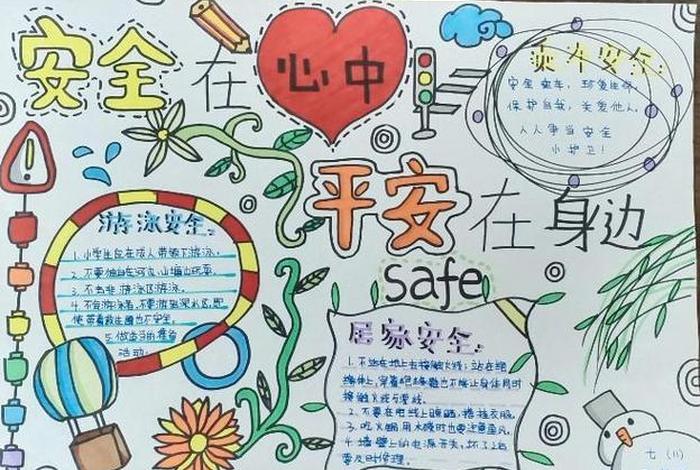 安全在心中
乘车安全:
安全乘车，珍爱生命，
保护自我，关爱他人，
人人争当安全
小护卫！
平安在身边
safe
游泳安全:
1.小学生应在成人带领下游泳。
2.不要独自在河边、山塘边玩耍。
3.不去非游泳区游泳。
4.不会游泳者，不要游到深水区，即
使带着救生圈也不安全。
5.做适当的准备
活动。
居家安全:
1.不站在地上去接触火线；站在绝
缘体上，穿着绝缘鞋也不能让身体同时
接触火线与零线。
2.不要在电线上晾晒、搭挂衣服。
3.吃火锅用木炭时也要注意通风。
4.墙壁上的电源开关，坏了应当
要及时修理。
七(11)